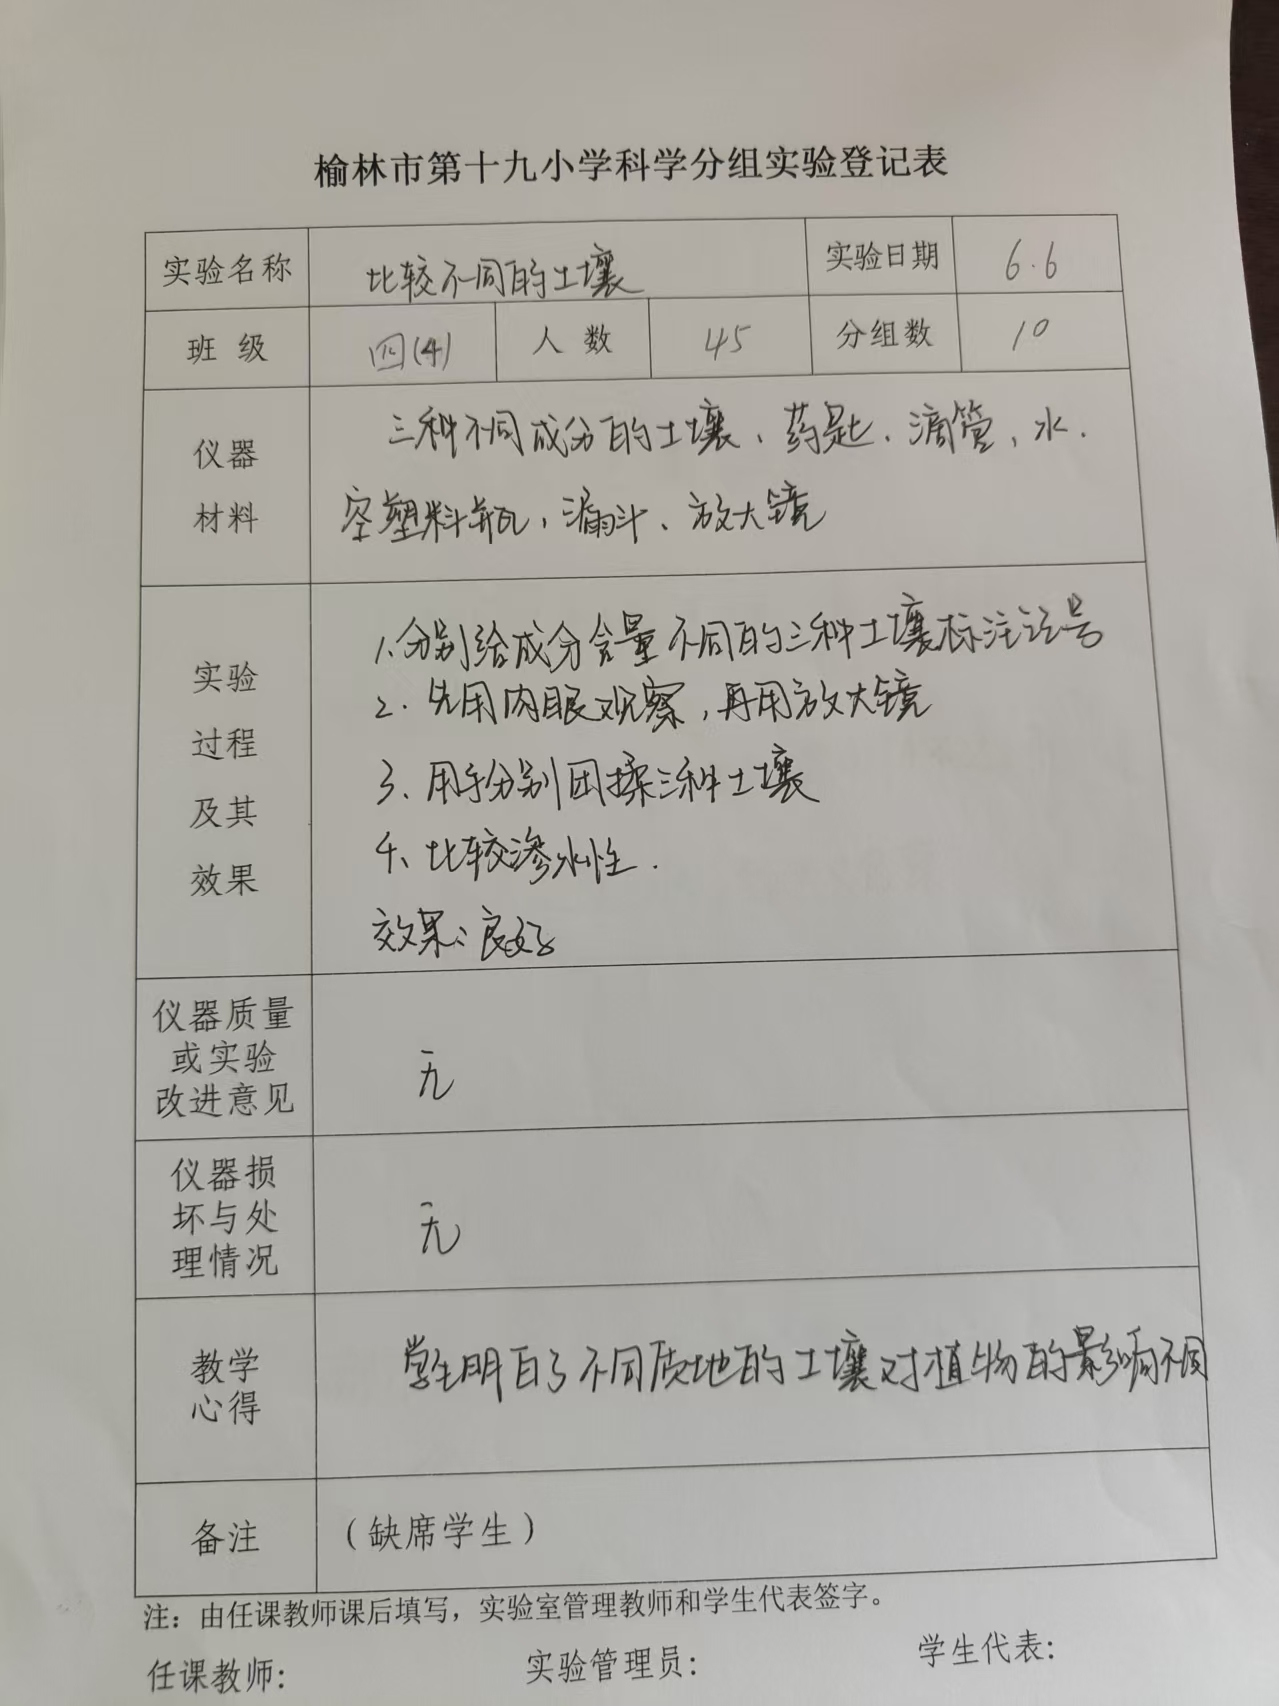 榆林市第十九小学科学分组实验登记表
实验名称 比较不同的土壤 实验日期 6.6
班级 四(4) 人数 45 分组数 10
仪器
材料
三种不同成分的土壤、药匙、滴管、水、
空塑料瓶、漏斗、放大镜
实验
过程
及其
效果
1.分别给成分含量不同的三种土壤标注记号
2.先用肉眼观察,再用放大镜
3、用手分别团揉三种土壤
4、比较渗水性.
效果:良好
仪器质量
或实验
改进意见
无
仪器损
坏与处
理情况
无
教学
心得
学生明白了不同质地的土壤对植物的影响不同
备注 (缺席学生)
注:由任课教师课后填写,实验室管理教师和学生代表签字。
任课教师: 实验管理员: 学生代表: